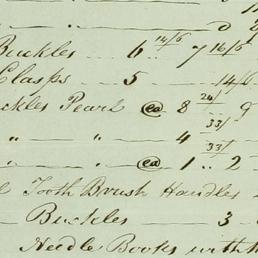 Buckles 6 14/6 7 16/6
Clasps 5 14/6
ckles Pearl @ 8 24/ 9
" " 4 33/
" @ 1 33/ 2
Tooth Brush Handles
Buckles 3
Needle Books with